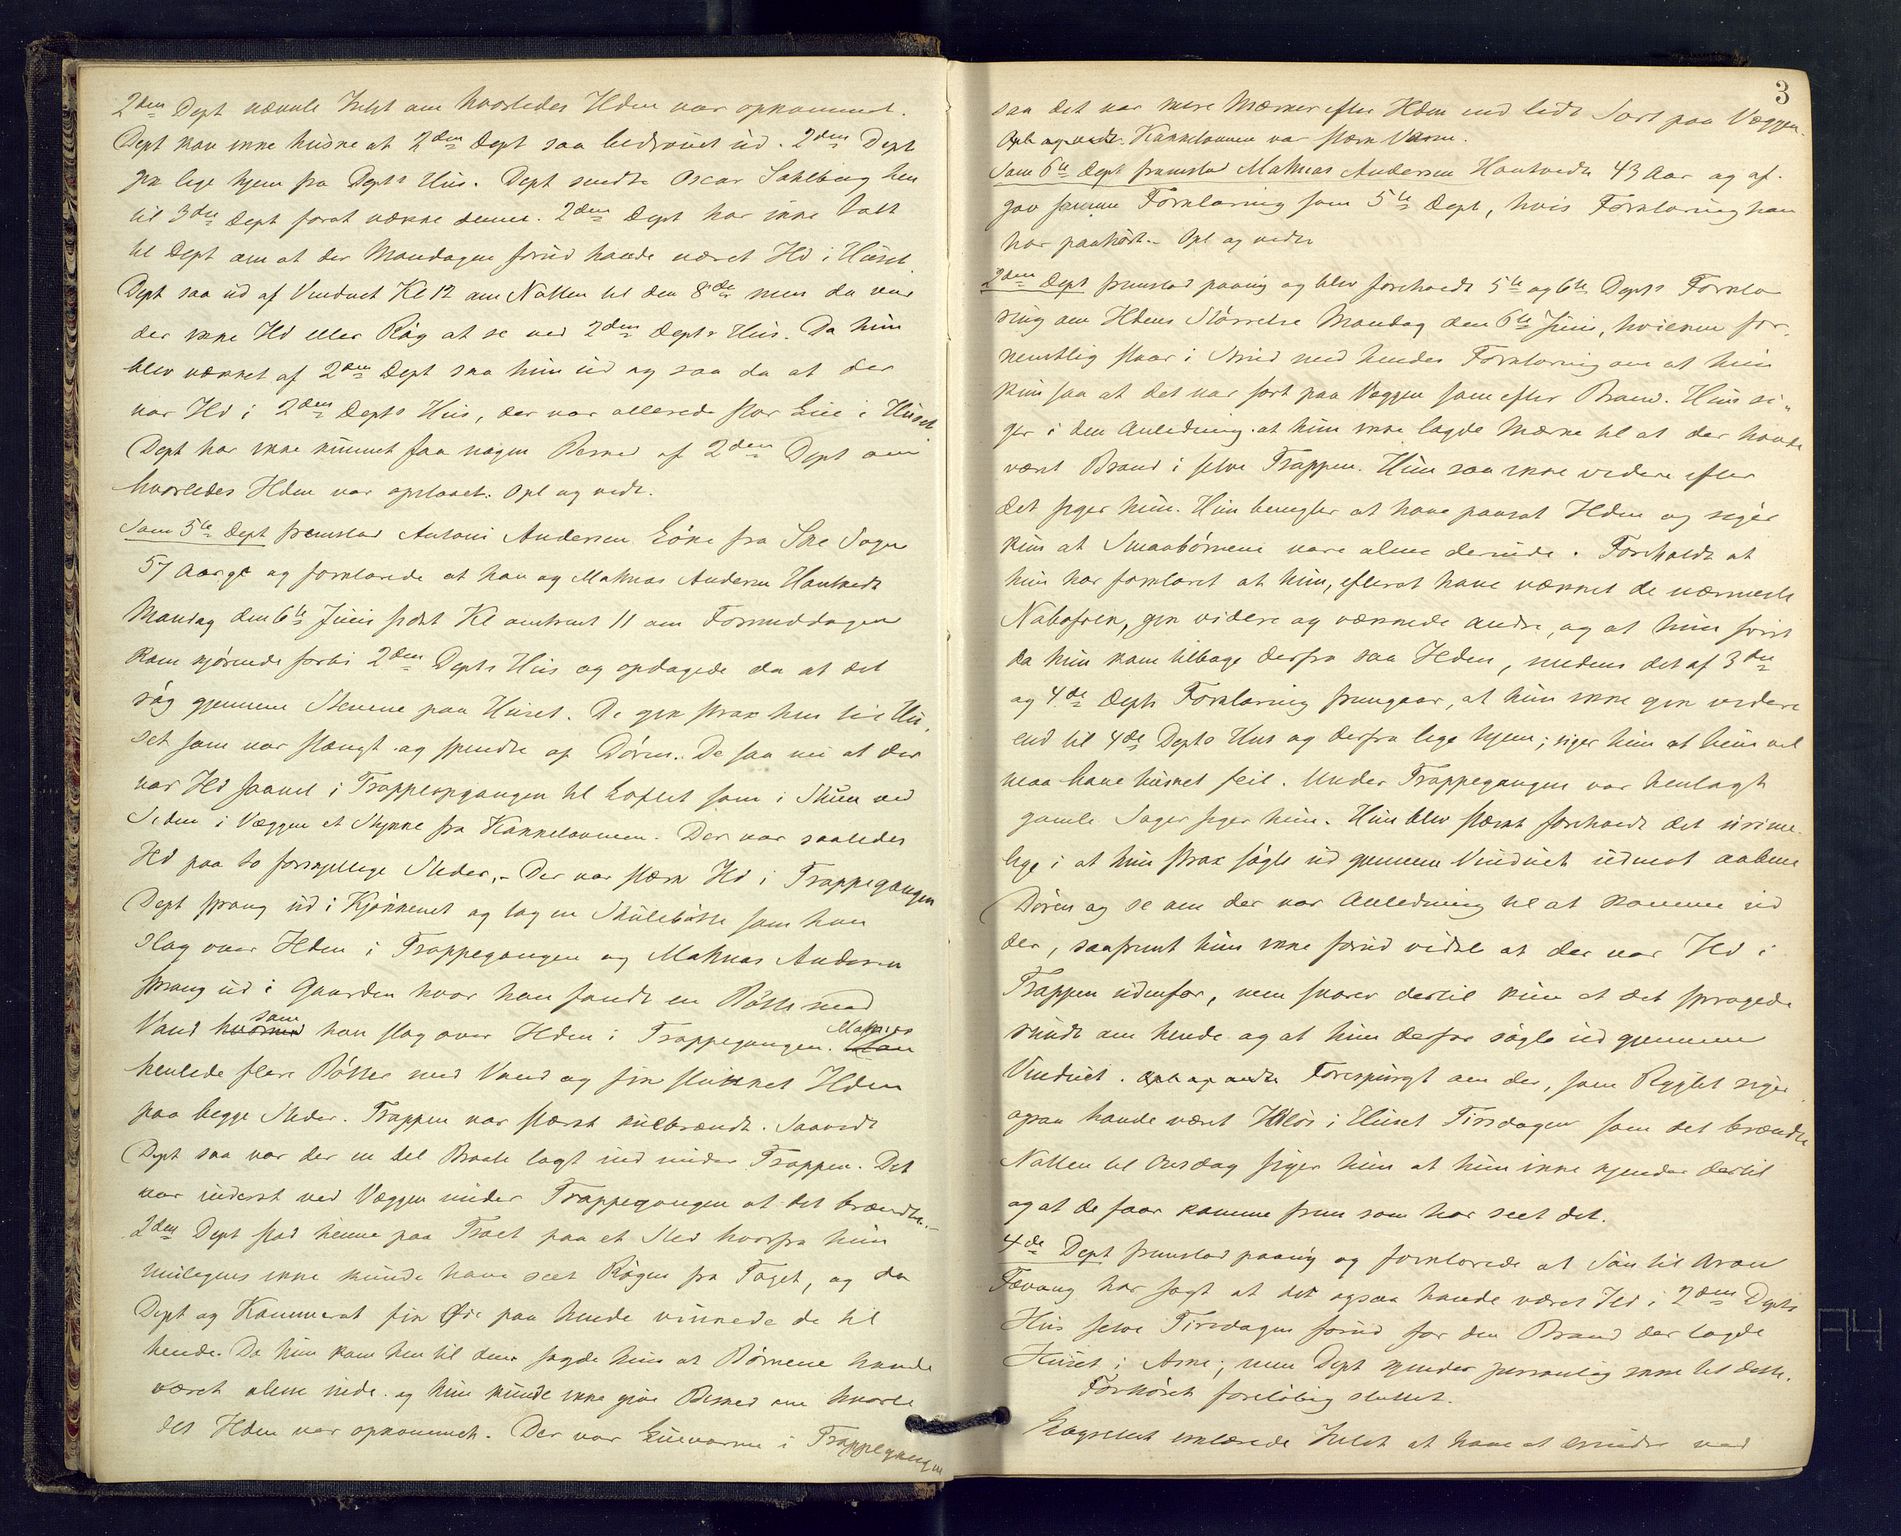 2den Dept nævnte Intet om hvorledes Ilden var opkommet.
Dept kan ikke huske at 2den Dept saa bedrøvet ud. 2den Dept
gik lige hjem fra Depts Hus. Dept sendte Oscar Sahlberg hen
til 3die Dept forat vække denne. 2den Dept har ikke talt
til Dept om at der Mandagen forud havde været Ild i Huset.
Dept saa ud af Vinduet Kl 12 om Natten til den 8de men da var
der ikke Ild eller Røg at se ved 2den Depts Hus. Da hun
blev vækket af 2den Dept saa hun ud og saa da at der
var Ild i 2den Depts Hus, der var allerede stor Lue i Huset.
Dept har ikke kunnet faa nogen Besked af 2den Dept om
hvorledes Ilden var opstaaet. Opl og vedt.
Som 5te Dept fremstod Antoni Andersen Løke fra Ske Sogn
57 Aar gl og forklarede at han og Mathias Andersen Hautvedt
Mandag den 6te Juni sidst Kl omtrent 11 om Formiddagen
kom kjørende forbi 2den Depts Hus og opdagede da at det
røg gjennem Stenene paa Huset. De gik strax hen til Hu,
set som var stængt og spendte op Døren. De saa nu at der
var Ild saavel i Trappeopgangen til Loftet som i Stuen ved
Siden i Væggen et Stykke fra Kakkelovnen. Der var saaledes
Ild paa to forskjellige Steder,- Der var stærk Ild i Trappegangen
Dept sprang ud i Kjøkkenet og tog en Skyllebøtte som han
slog over Ilden i Trappegangen og Mathias Andersen
sprang ud i Gaarden hvor han fandt en Bøtte med
Vand som han slog over Ilden i Trappegangen. Mathias
hentede flere Bøtter med Vand og fik slukket Ilden
paa begge Steder. Trappen var stærkt kulbrændt. Saavidt
Dept saa var der en del Brate lagt ind under Trappen. Det
var inderst ved Væggen under Trappegangen at det brændte.-
2den Dept stod henne paa Træet paa et Sted hvorfra hun
muligens ikke kunde have seet Røgen fra Taget, og da
Dept og Kammerat fik Øie paa hende vinkede de til
hende. Da hun kom hen til dem sagde hun at Børnene havde
været alene inde og hun kunde ikke give Besked om hvorle
des Ilden var opkommet. Der var Luevarme i Trappegangen
3
saa det var mere Mærker efter Ilden end lidt Sort paa Væggen.
Opl og vedt. Kakkelovnen var stærk Varm.
Som 6te Dept fremstod Mathias Andersen Hautvedt 43 Aar og af-
gav samme Forklaring som 5te Dept, hvis Forklaring han
har paahørt. Opl og vedt
2den Dept fremstod paany og blev foreholdt 5te og 6te Depts Forkla
ring om Ildens Størrelse Mandag den 6te Juni, hvilken for-
nemtlig staar i Strid med hendes Forklaring om at hun
kun saa at det var sort paa Væggen som efter Brand. Hun si-
ger i den Anledning at hun ikke lagde Mærke til at der havde
været Brand i selve Trappen. Hun saa ikke videre efter
det siger hun. Hun benegter at have paasat Ilden og siger
kun at Smaabørnene vare alene derinde. Foreholdt at
hun har forklaret at hun, efterat have vækket de nærmeste
Nabofolk, gik videre og vækkede andre, og at hun først
da hun kom tilbage derfra saa Ilden, medens det af 3die
og 4de Depts Forklaring fremgaar, at hun ikke gik videre
end til 4de Depts Hus og derfra lige hjem; siger hun at hun vel
maa have husket feil. Under Trappegangen var henlagt
gamle Sager siger hun. Hun blev stærkt foreholdt det urime-
lige i at hun strax søgte ud gjennem Vinduet udenat aabne
Døren og se om der var Anledning til at komme ud
der, saafremt hun ikke forud vidste at der var Ild i
Trappen udenfor, men svarer dertil kun at det spragede
rundt om hende og at hun derfor søgte ud gjennem
Vinduet. Opl og vedt Forespurgt om der, som Rygtet siger
ogsaa havde været Ildløs i Huset Tirsdagen som det brændte
Natten til Onsdag siger hun at hun ikke kjender dertil
og at de faar komme frem som har seet det.
4de Dept fremstod paany og forklarede at Søn til Aron
Fævang har sagt at det ogsaa havde været Ild i 2den Depts
Hus selve Tirsdagen forud for den Brand der lagde
Huset i Aske; men Dept kjender personlig ikke til dette.
Forhøret foreløbig sluttet.
Lagrettet erklærede Intet at have at erindre ved